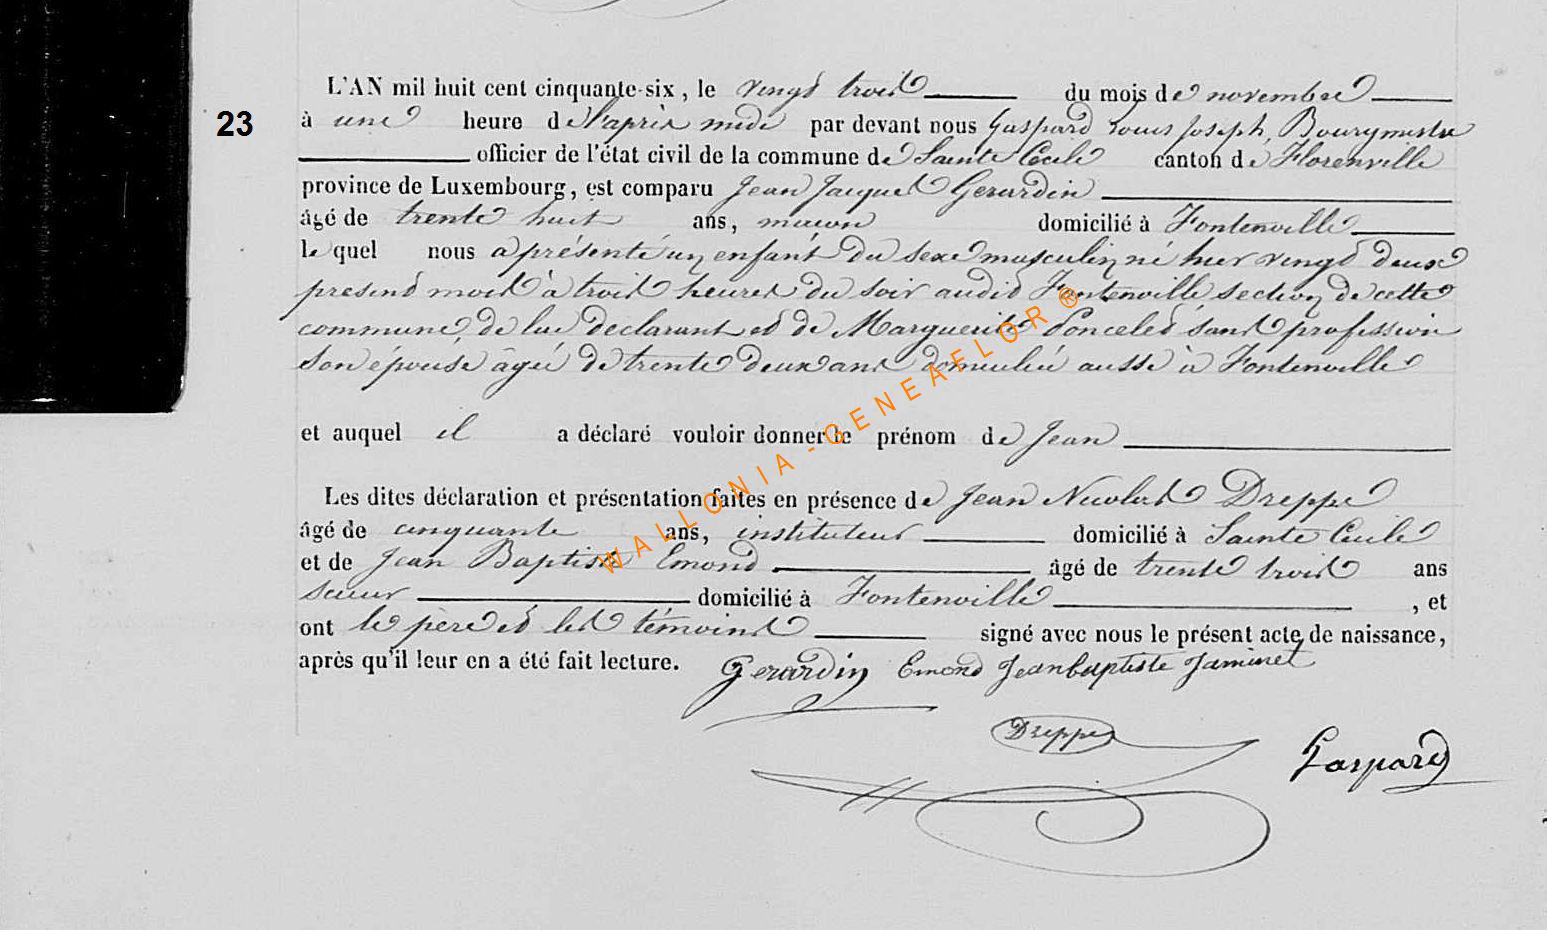 L'AN mil huit cent cinquante-six, le vingt trois du mois de novembre
23
à une heure de l'après midi par devant nous Gaspard Louis Joseph, Bourgmestre
officier de l'état civil de la commune de Sainte Cécile canton de Florenville
province de Luxembourg, est comparu Jean Jacques Gerardin
âgé de trente huit ans, maçon domicilié à Fontenoille
lequel nous a présenté un enfant du sexe masculin, né hier vingt deux
present mois à trois heures du soir audit Fontenoille, section de cette
commune, de lui declarant et de Marguerite Poncelet, sans profession
son épouse, âgée de trente deux ans domiciliée aussi à Fontenoille
et auquel il a déclaré vouloir donner le prénom de Jean
Les dites déclaration et présentation faites en présence de Jean Nicolas Dreppe
âgé de cinquante ans, instituteur domicilié à Sainte Cécile
et de Jean Baptiste Emond âgé de trente trois ans
scieur domicilié à Fontenoille , et
ont le père et les témoins signé avec nous le présent acte de naissance,
après qu'il leur en a été fait lecture. Gerardin Emond Jeanbaptiste Jaminet
Dreppe
Gaspard
WALLONIA-GENEAFLOR ®